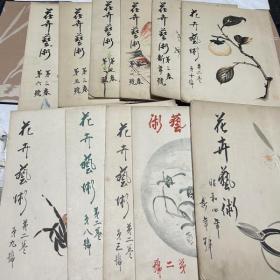 花卉藝術
第二卷
第六號
花卉藝術
第二卷
第五號
花卉藝術
第二卷
花卉藝術
花卉藝術
第三卷
新年號
花卉藝術
第二卷
第十號
花卉藝術
第二卷
第九號
花卉藝術
第二卷
第八號
花卉藝術
第二卷
第三號
藝術
第二號
花卉藝術
昭和四年
新年號